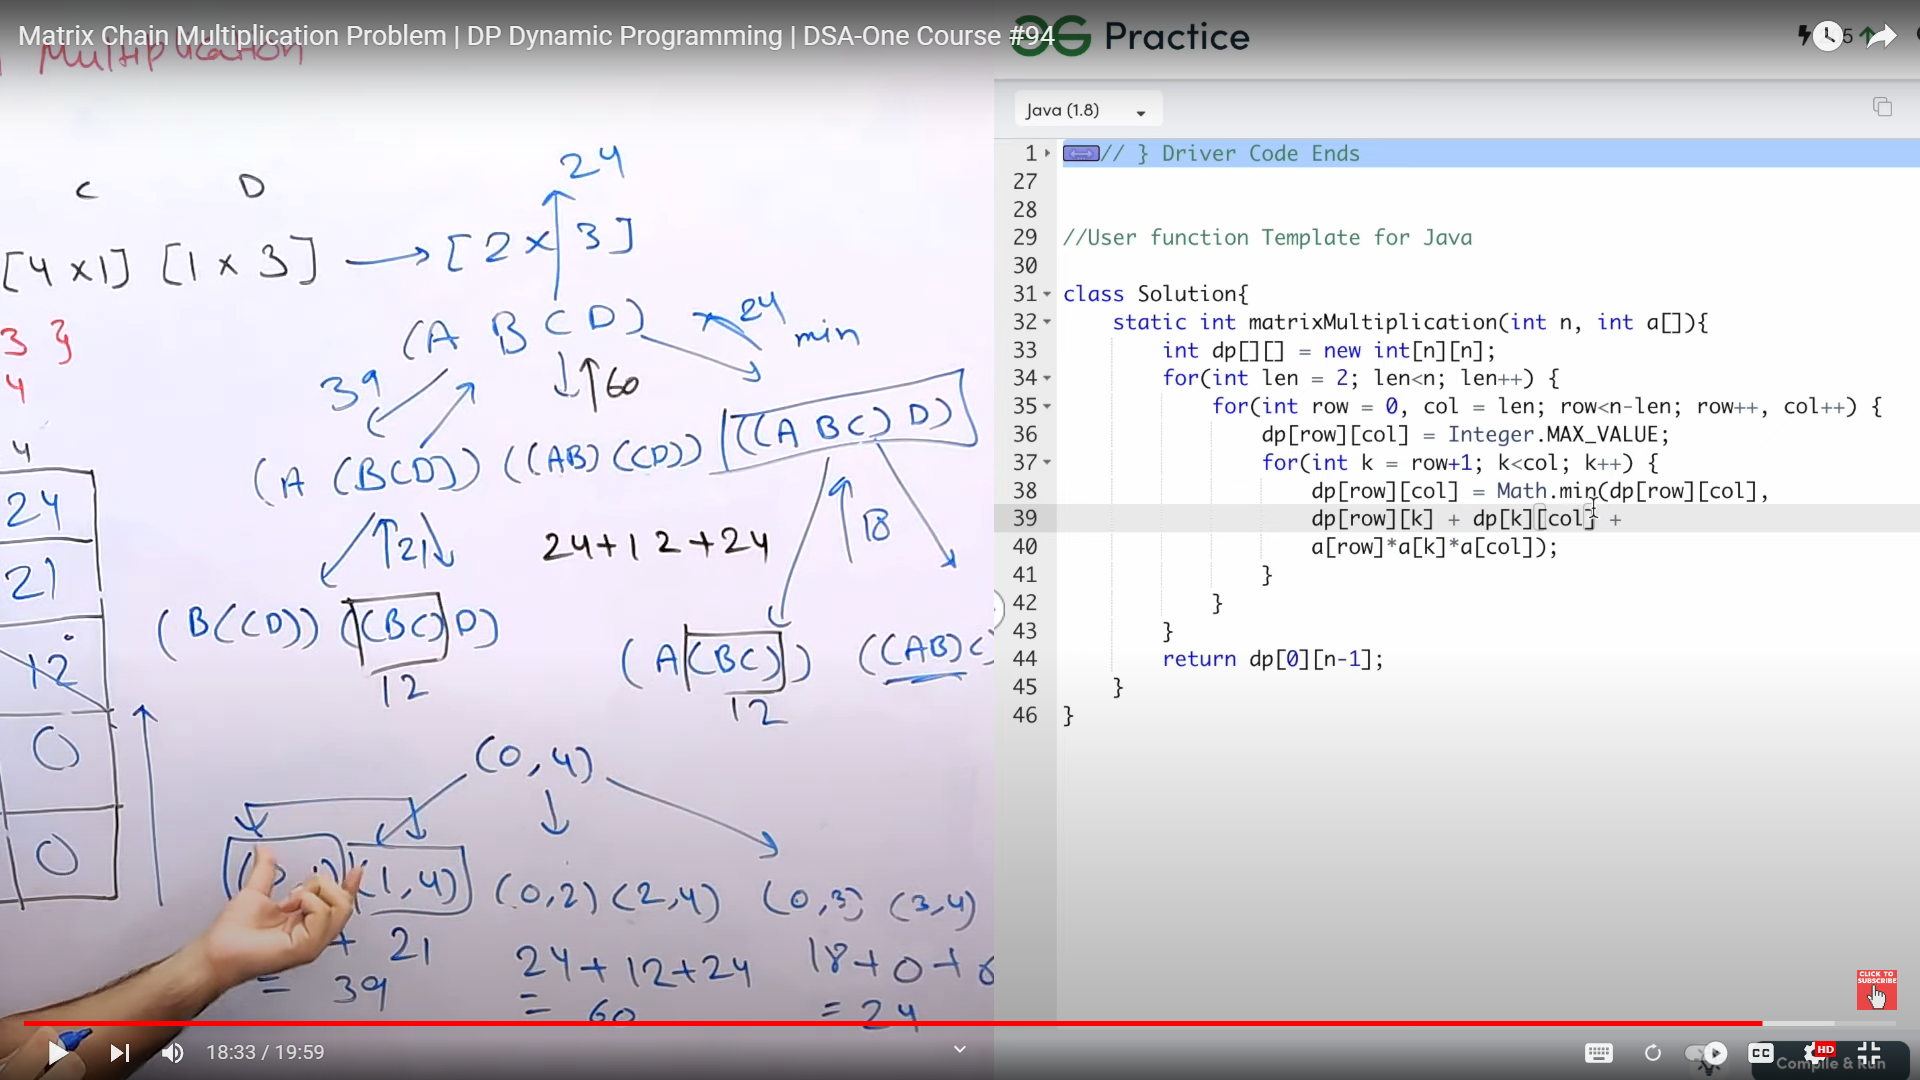 Matrix Chain Multiplication Problem | DP Dynamic Programming | DSA-One Course #94
Multiplication
C D
[4 x 1] [1 x 3] → [2 x 3]
24
3 }
4
(A B C D) 24 min
39
60
(A (BCD)) ((AB) (CD)) ((A B C) D)
21
24+12+24
18
(B(CD)) ((BC)D)
12
(A(BC)) ((AB)C)
12
4
24
21
12
0
0
(0,4)
(1,4) (0,2) (2,4) (0,3) (3,4)
+ 21
= 39
24+12+24
= 60
18+0+6
= 24
Practice
5
Java (1.8)
1 // } Driver Code Ends
27
28
29 //User function Template for Java
30
31 class Solution{
32 static int matrixMultiplication(int n, int a[]){
33 int dp[][] = new int[n][n];
34 for(int len = 2; len<n; len++) {
35 for(int row = 0, col = len; row<n-len; row++, col++) {
36 dp[row][col] = Integer.MAX_VALUE;
37 for(int k = row+1; k<col; k++) {
38 dp[row][col] = Math.min(dp[row][col],
39 dp[row][k] + dp[k][col] +
40 a[row]*a[k]*a[col]);
41 }
42 }
43 }
44 return dp[0][n-1];
45 }
46 }
CLICK TO
SUBSCRIBE
18:33 / 19:59
CC
HD
Compile & Run